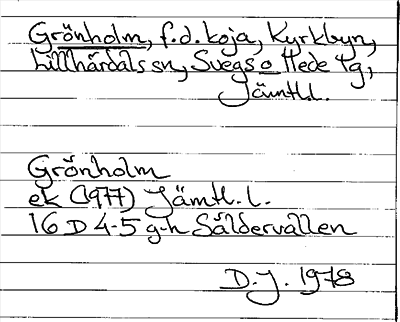 Grönholm, f.d. koja, Kyrkbyn,
Lillhärdals sn, Svegs o Hede tg,
Jämtl.l.
Grönholm
ek (1977) Jämtl. l.
16 D 4-5 g-h Såldervallen
D.J. 1978